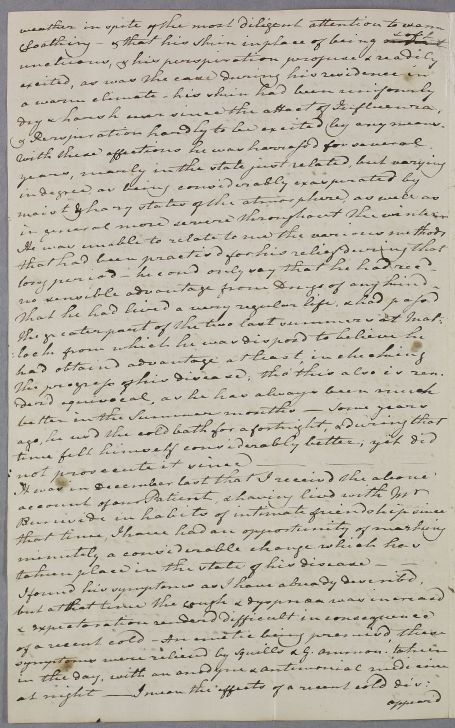 weather in spite of the most diligent attention to warm
Cloathing - & that his skin in place of being soft &
unctuous, & his perspiration profuse & readily
excited, as was the case during his residence in
a warm climate - his skin had been uniformly
dry & harsh ever since the attack of Influenza,
& Perspiration hardly to be excited by any means.
With these affections he was harrass'd for several
years, nearly in the state just related, but varying
in degree as being considerably exasperated by
moist & hazy states of the atmosphere, as well as
in general more severe throughout the winter
He was unable to relate to me the various methods
that had been practised for his relief during that
long period - he coud only say that he had recd
no sensible advantage from Drugs of any kind -
That he had lived a very regular life, & had pass'd
the greater part of the two last summers at Mat-
lock, from which he was dispos'd to believe he
had obtain'd advantage at least, in checking
the progress of his disease, tho' this also is ren-
der'd equivocal, as he has always been much
better in the Summer months - Some years
ago, he us'd the cold bath for a fortnight, & during that
time felt himself considerably better, yet did
not prosecute it since
It was in December last that I receiv'd the above
account of our Patient, & having lived with Mr
Burnside in habits of intimate friendship since
that time, I have had an opportunity of marking
minutely a considerable change which has
taken place in the state of his disease -
I found his symptoms as I have already describ'd,
but at that time the cough & dyspnœa was increased
& expectoration render'd difficult in consequence
of a recent cold - An emetic being premis'd these
symptoms were reliev'd by Squills & G. ammon. taken
in the day, with an anodyne & antimonial medicine
at night - When the effects of a recent cold dis-
appeard